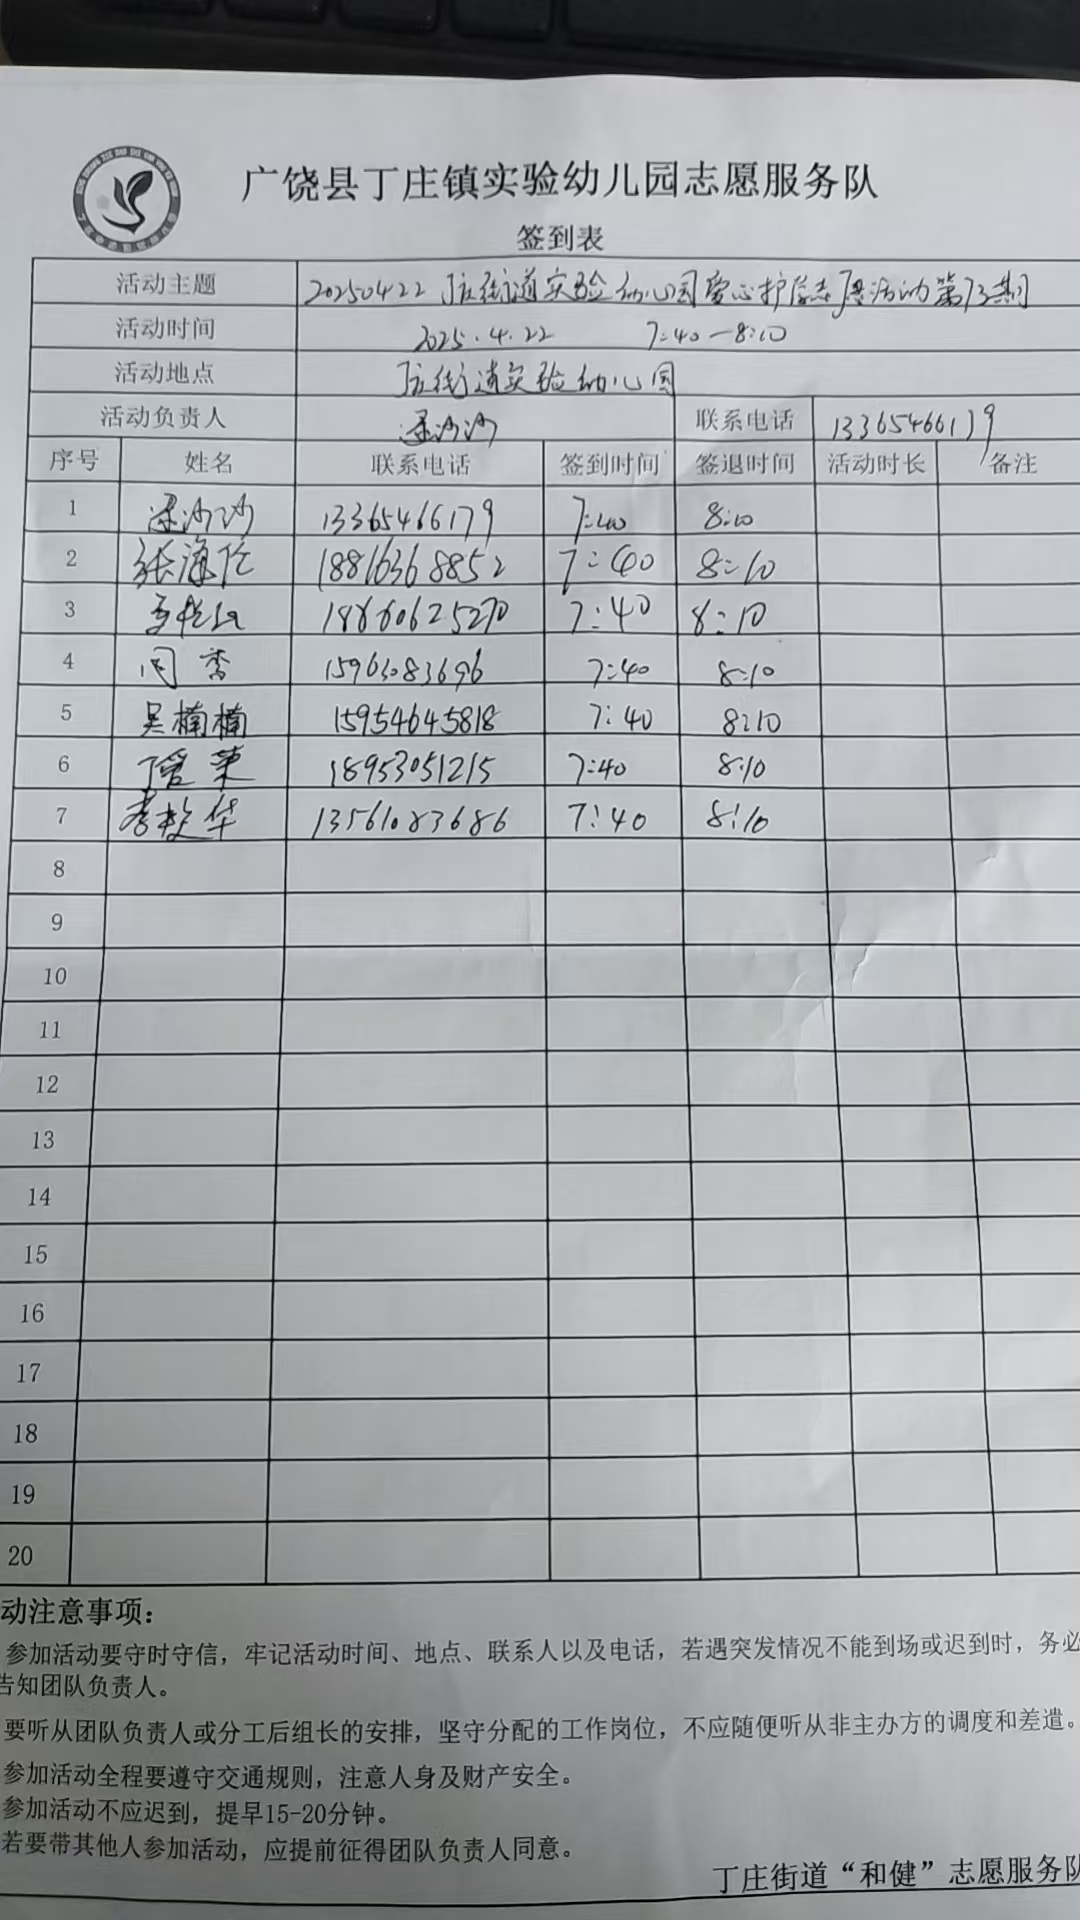 广饶县丁庄镇实验幼儿园志愿服务队
签到表
活动主题 20250422丁庄街道实验幼儿园爱心护学志愿活动第73期
活动时间 2025.4.22 7:40-8:10
活动地点 丁庄街道实验幼儿园
活动负责人 梁沙沙 联系电话 13365466179
序号 姓名 联系电话 签到时间 签退时间 活动时长 备注
1 梁沙沙 13365466179 7:40 8:10
2 张海伦 18816368852 7:40 8:10
3 18660625270 7:40 8:10
4 15963083696 7:40 8:10
5 吴楠楠 15954645818 7:40 8:10
6 丁爱荣 18953051215 7:40 8:10
7 李 华 13561083686 7:40 8:10
8
9
10
11
12
13
14
15
16
17
18
19
20
动注意事项：
参加活动要守时守信，牢记活动时间、地点、联系人以及电话，若遇突发情况不能到场或迟到时，务必
告知团队负责人。
要听从团队负责人或分工后组长的安排，坚守分配的工作岗位，不应随便听从非主办方的调度和差遣。
参加活动全程要遵守交通规则，注意人身及财产安全。
参加活动不应迟到，提早15-20分钟。
若要带其他人参加活动，应提前征得团队负责人同意。
丁庄街道“和健”志愿服务队